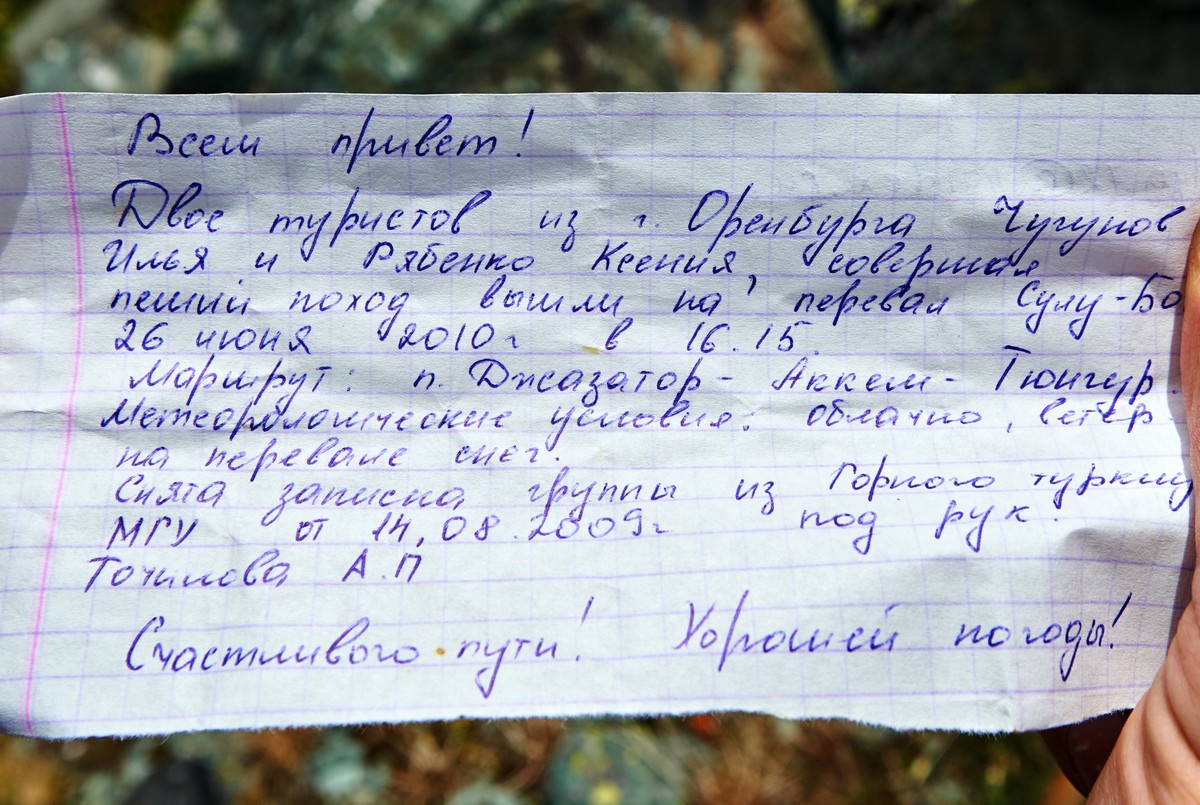 Всем привет!
Двое туристов из г. Оренбурга Чугунов
Илья и Рябенко Ксения, совершая
пеший поход вышли на перевал Сулу-Бо
26 июня 2010г в 16.15.
Маршрут: п. Джазатор - Аккем - Тюнгур.
Метеорологические условия: облачно, ветер
на перевале снег.
Снята записка группы из Горного
МГУ от 14.08.2009г под рук.
Точилова А.П
Счастливого пути! Хорошей погоды!